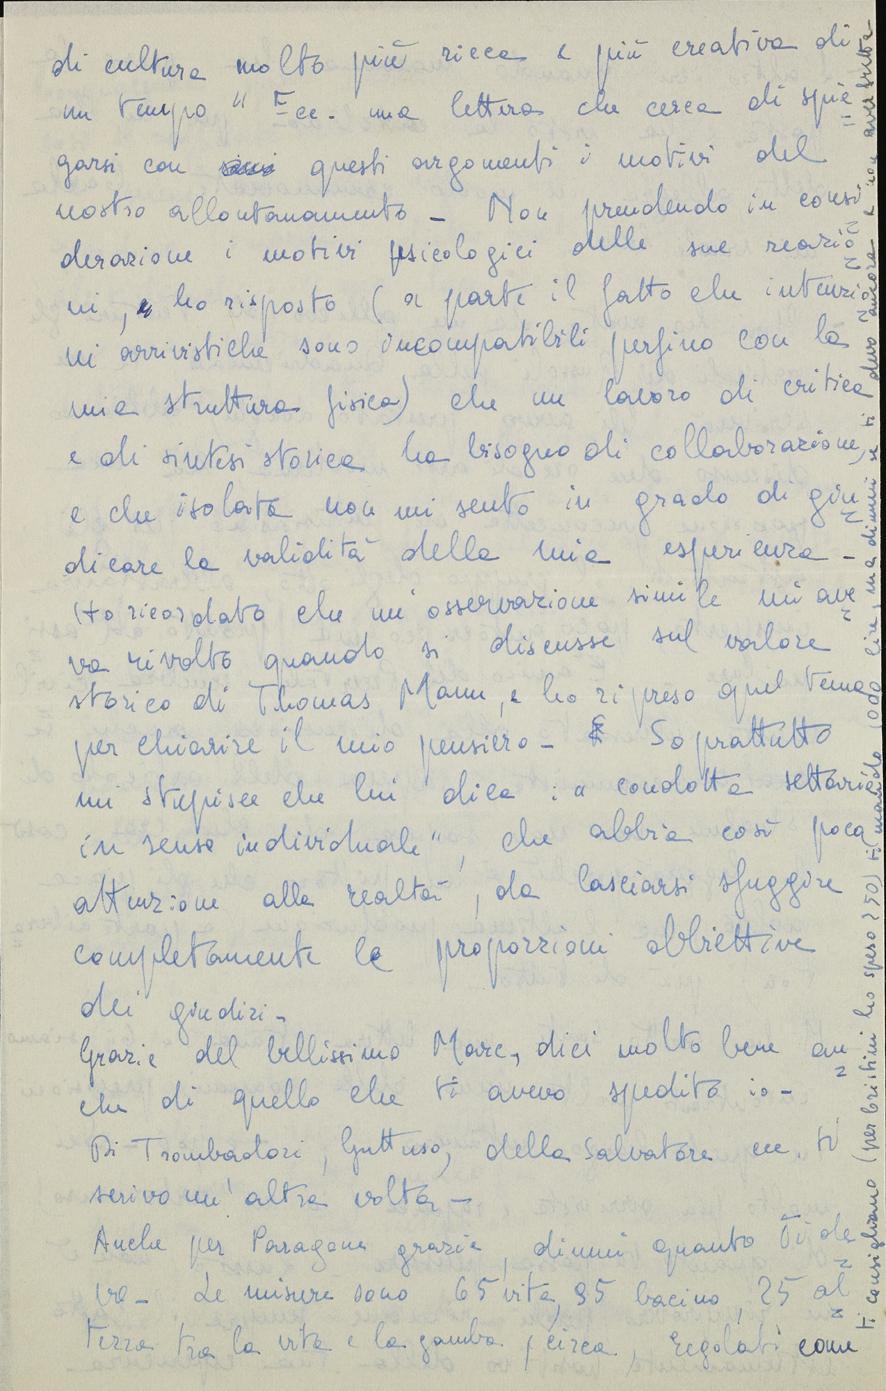 di cultura molto più ricca e più creativa di
un tempo" Ecc. una lettera che cerca di spie=
garsi con questi argomenti i motivi del
nostro allontanamento - Non prendendo in consi=
derazione i motivi psicologici delle sue reazio=
ni, ho risposto (a parte il fatto che intenzio=
ni arrivistiche sono incompatibili perfino con la
mia struttura fisica) che un lavoro di critica
e di sintesi storica ha bisogno di collaborazione,
e che isolata non mi sento in grado di giu=
dicare la validità della mia esperienza -
(Ho ricordato che un'osservazione simile mi ave=
va rivolto quando si discusse sul valore
storico di Thomas Mann, e ho ripreso quel tema
per chiarire il mio pensiero - Soprattutto
mi stupisce che lui dica: "condotta settaria
in senso individuale", che abbia così poca
attenzione alla realtà, da lasciarsi sfuggire
completamente le proporzioni obbiettive
dei giudizi -
Grazie del bellissimo Marc, dici molto bene an=
che di quello che ti avevo spedito io -
Di Trombadori, Guttuso, della Salvatore ecc. ti
scrivo un'altra volta -
Anche per Paragone grazie, dimmi quanto ti de=
vo - Le misure sono 65 vita, 95 bacino, 25 al=
tezza tra la vita e la gamba, circa, regolati come
ti consigliano (per bikini ho speso 250) ti mando 1000 lire, ma dimmi se ti devo ancora e non